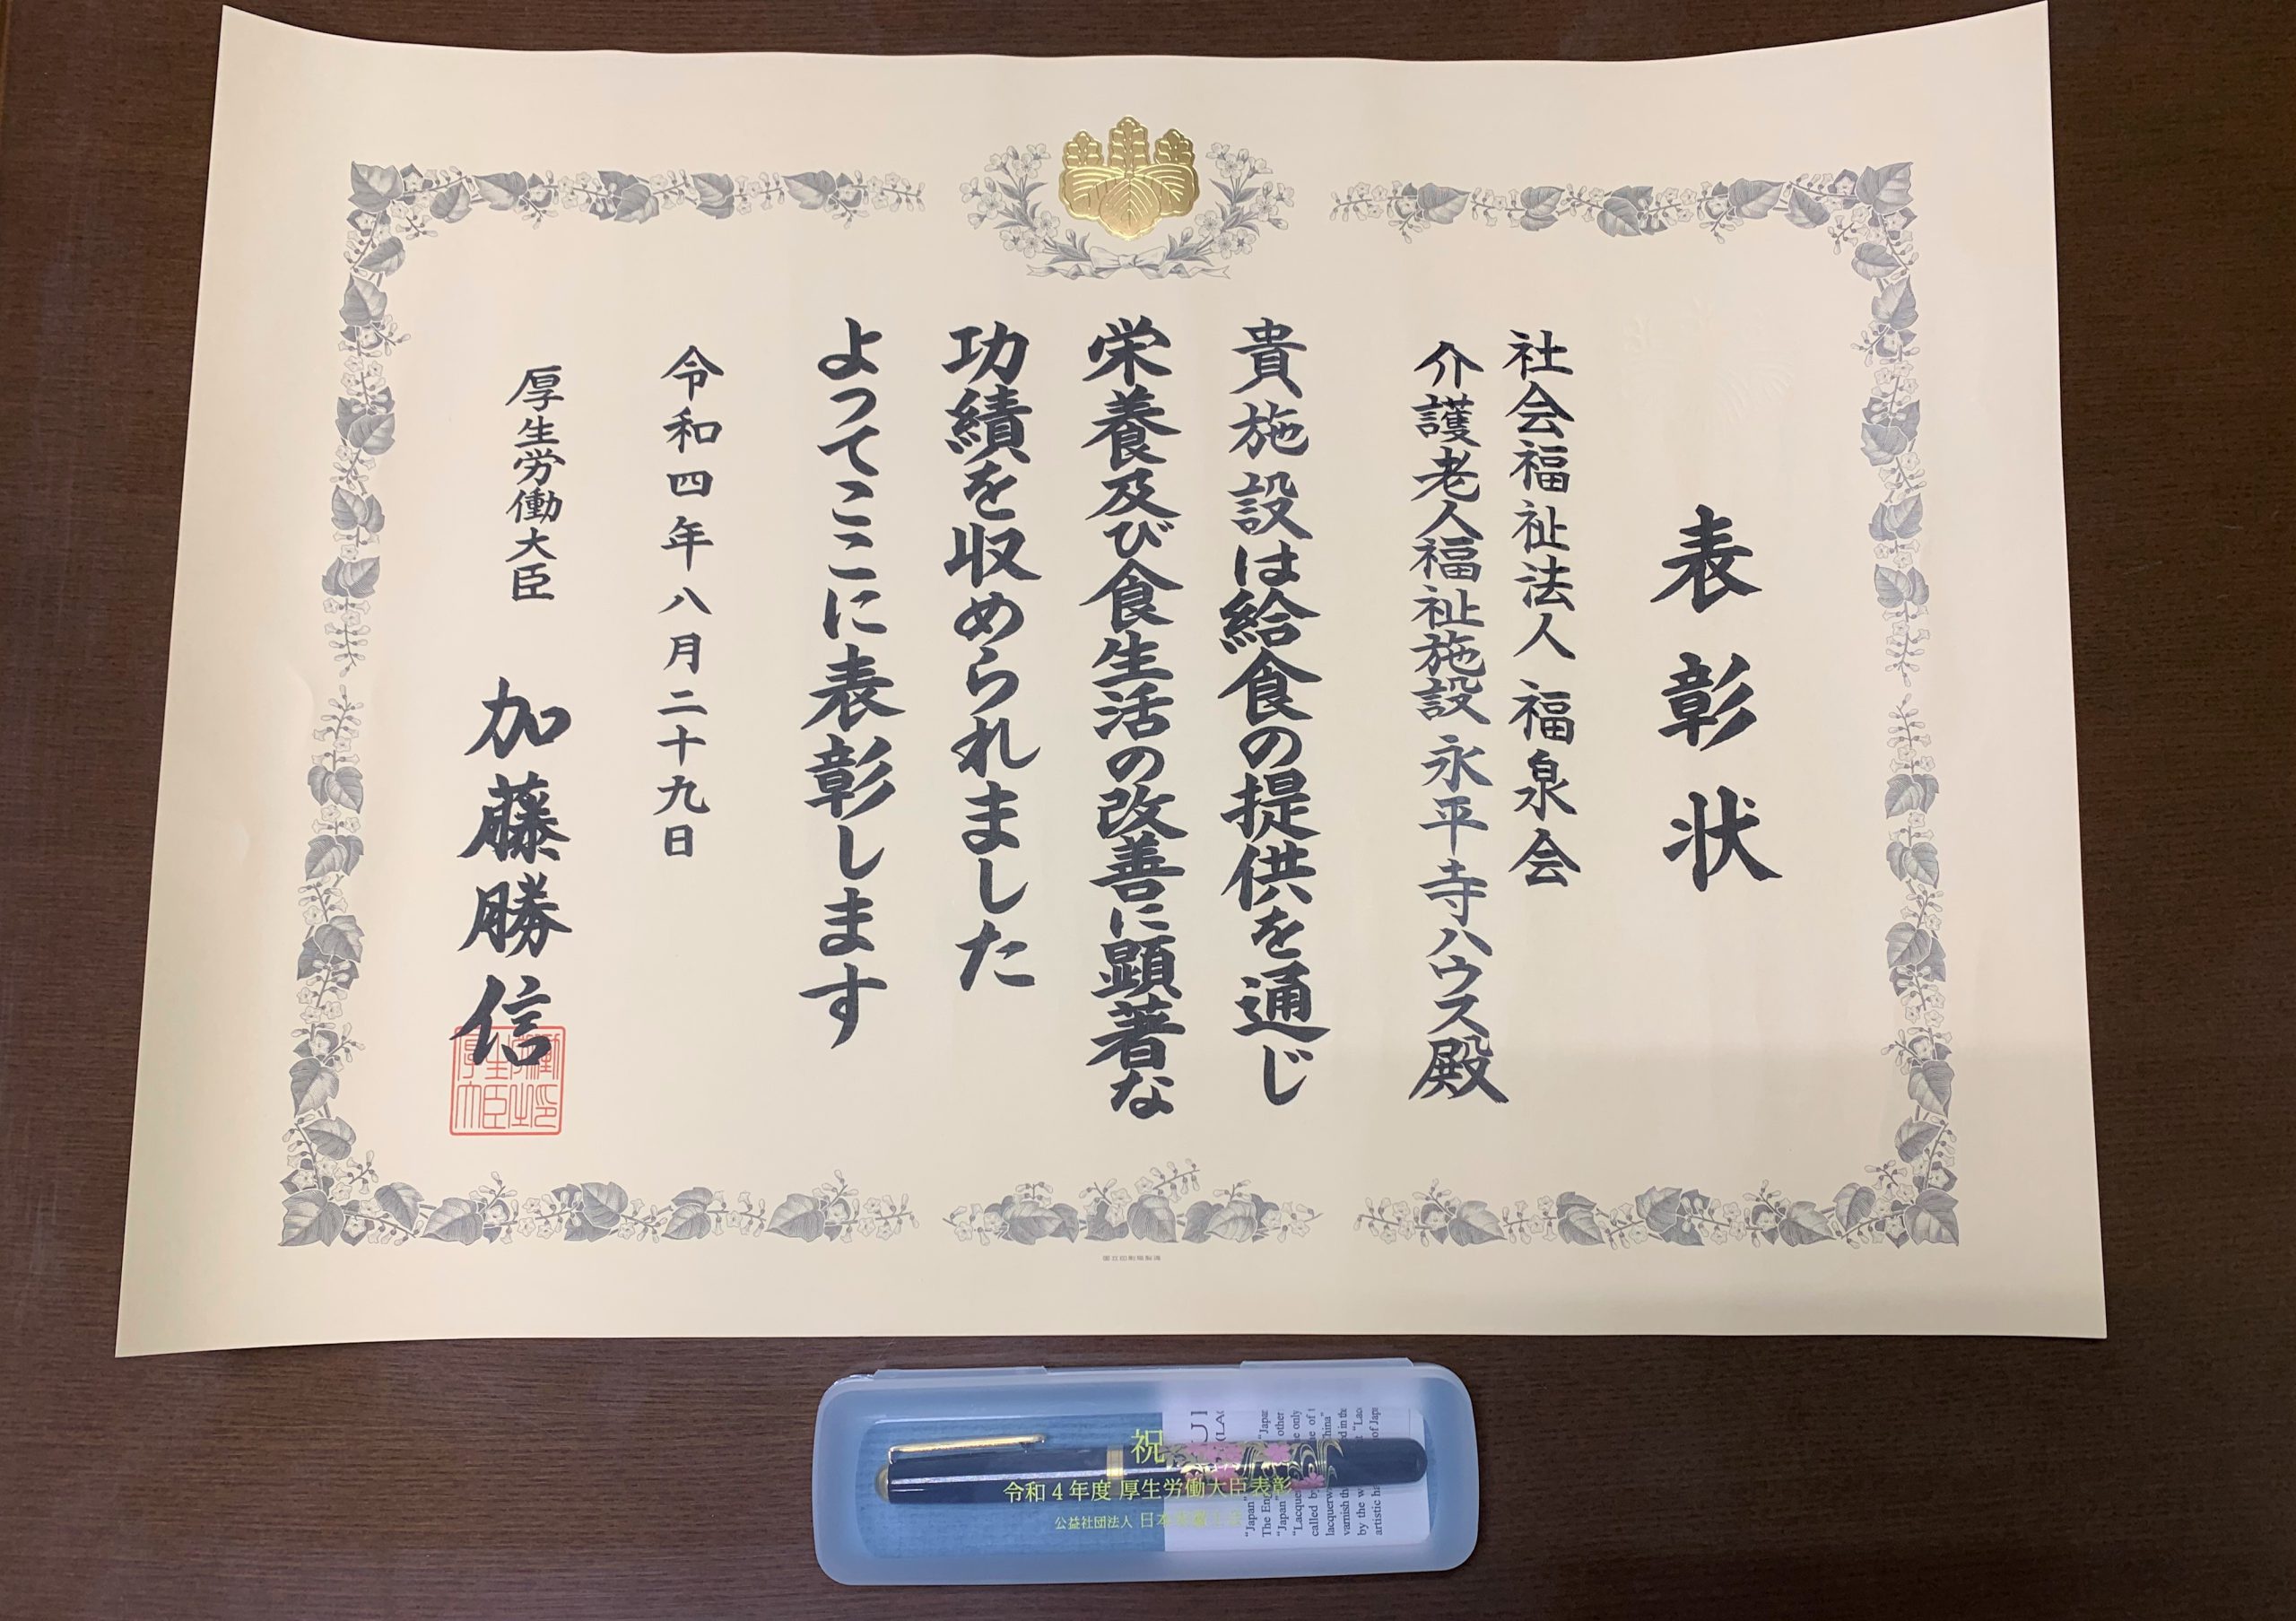 表彰状
社会福祉法人 福泉会
介護老人福祉施設 永平寺ハウス殿
貴施設は給食の提供を通じ
栄養及び食生活の改善に顕著な
功績を収められました
よってここに表彰します
令和四年八月二十九日
厚生労働大臣 加藤勝信
祝
令和4年度 厚生労働大臣表彰
公益社団法人 日本
"Japan"
The En
"Japan"
"Lacque
called by
lacquerw
varnish th
by the w
artistic ha
"Japan
other
only
of t
China"
d in the
"Lac
of Japa